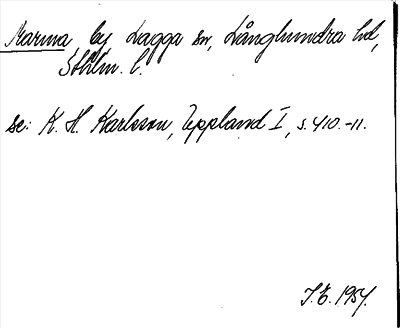 Marma by Lagga sn, Långhundra hd,
Sthlm. l.
se: K. H. Karlsson, Uppland I, s. 410.-11.
I.E. 1954.